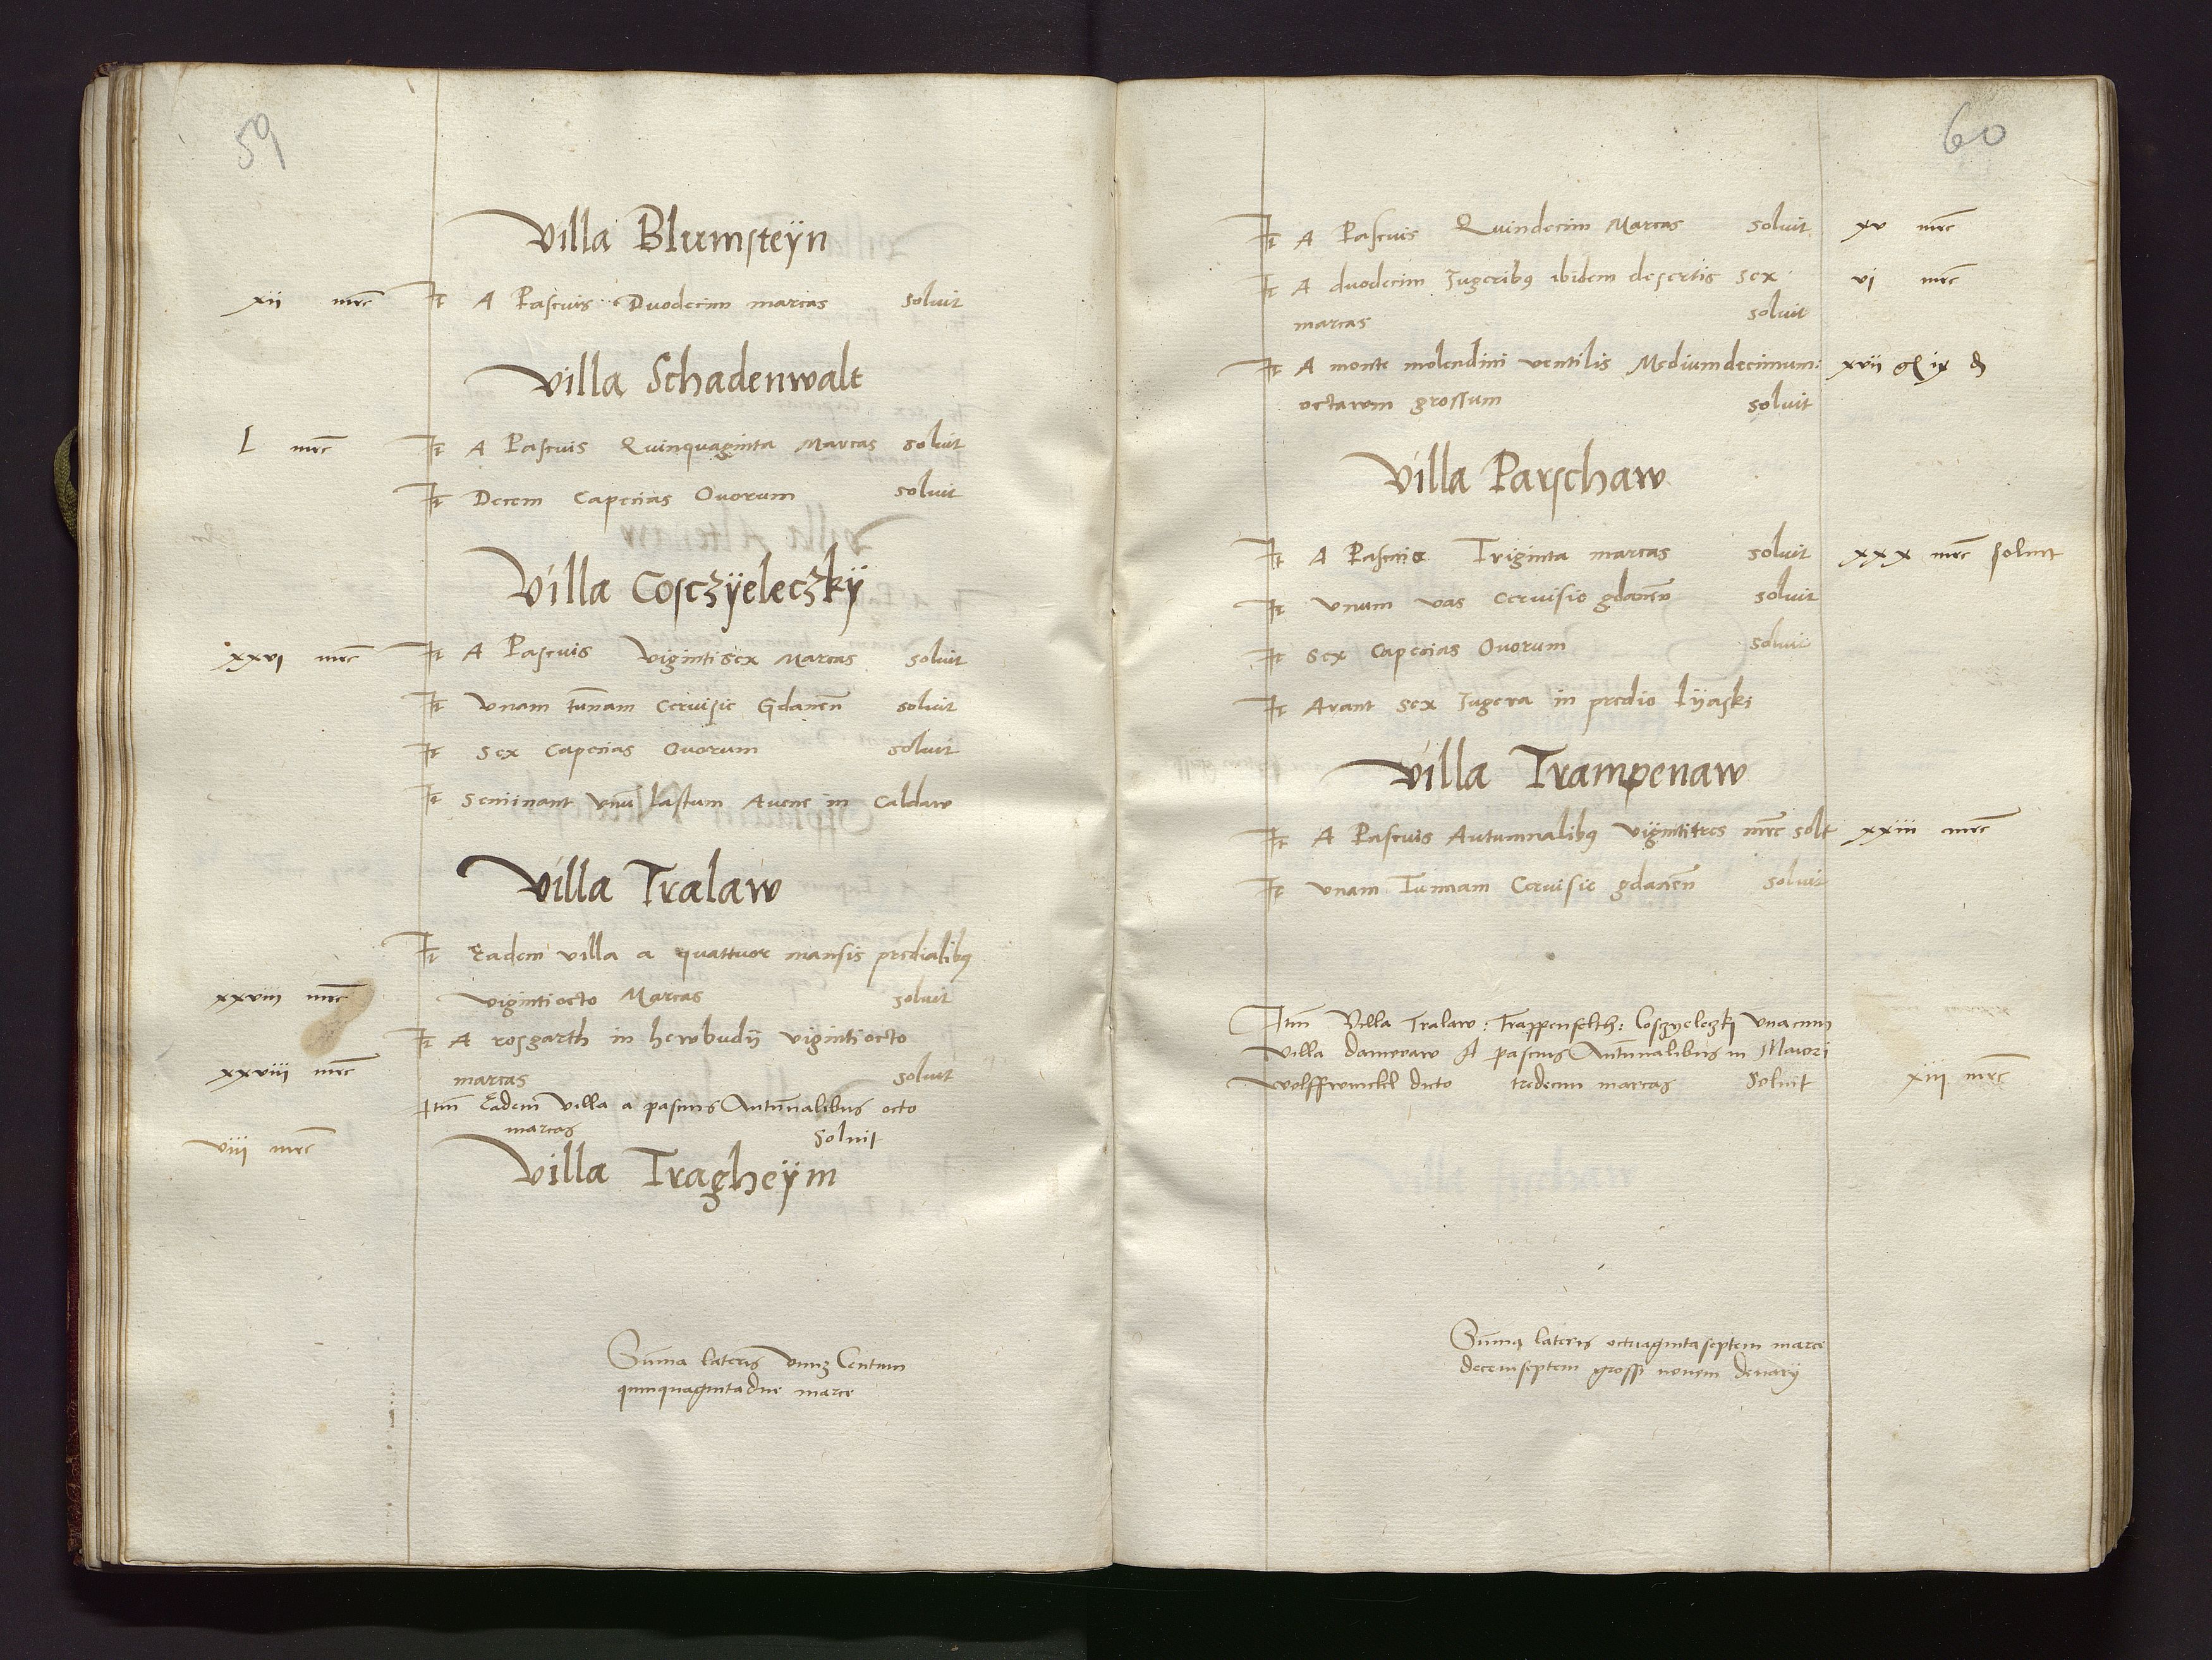 59
Villa Blumsteÿn
xii mrc Itē A Pascuis Duodecim marcas soluit
Villa Schadenwalt
L mrc Itē A Pascuis Quinquaginta Marcas soluit
Itē Decem Capecias Ouorum soluit
Villa Cosczÿeleczkÿ
xxvi mrc Itē A Pascuis vigintisex Marcas soluit
Itē vnam tunnam Ceruisie Gdanen̄ soluit
Itē Sex Capecias Ouorum soluit
Itē Seminant vnū lastum Auene in Caldaw
Villa Tralaw
Itē Eadem villa a quattuor mansis predialibꝰ
xxviii mrc vigintiocto Marcas soluit
Itē A rosgarth in hewbudÿ vigintiocto
xxviii mrc marcas soluit
Itm̄ Eadem Villa a pascuis Autūnalibus octo
viii mrc marcas soluit
Villa Tragheÿm
Sum̄a lateris vnuȝ Centum
quinquagintadue marce
60
Itē A Pascuis Quindecim Marcas soluit xv mrc
Itē A duodecim Iugeribꝰ ibidem desertis sex vi mrc
marcas soluit
Itē A monte molendini ventilis Mediumdecimum: xvii gſ ix ₰
octauum grossum soluit
Villa Parschaw
Itē A Pascuis Triginta marcas soluit xxx mrc soluit
Itē vnum vas Ceruisie gdanen̄ soluit
Itē Sex Capecias Ouorum soluit
Itē Arant Sex Iugera in predio Lÿaski
Villa Trampenaw
Itē A Pascuis Autumnalibꝰ vigintitres mrc solt xxiii mrc
Itē vnam Tunnam Ceruisie gdanen̄ soluit
Itm̄ Villa Tralaw: Trappenfelth: Cosczyeleczkj vnacum
villa Dameraw A pascuis Autūnalibus in Maiori
Wolffwinckel dicto tredecim marcas Soluit xiii mrc
Sum̄a lateris octuagintaseptem marce
decemseptem grossi nouem denarÿ